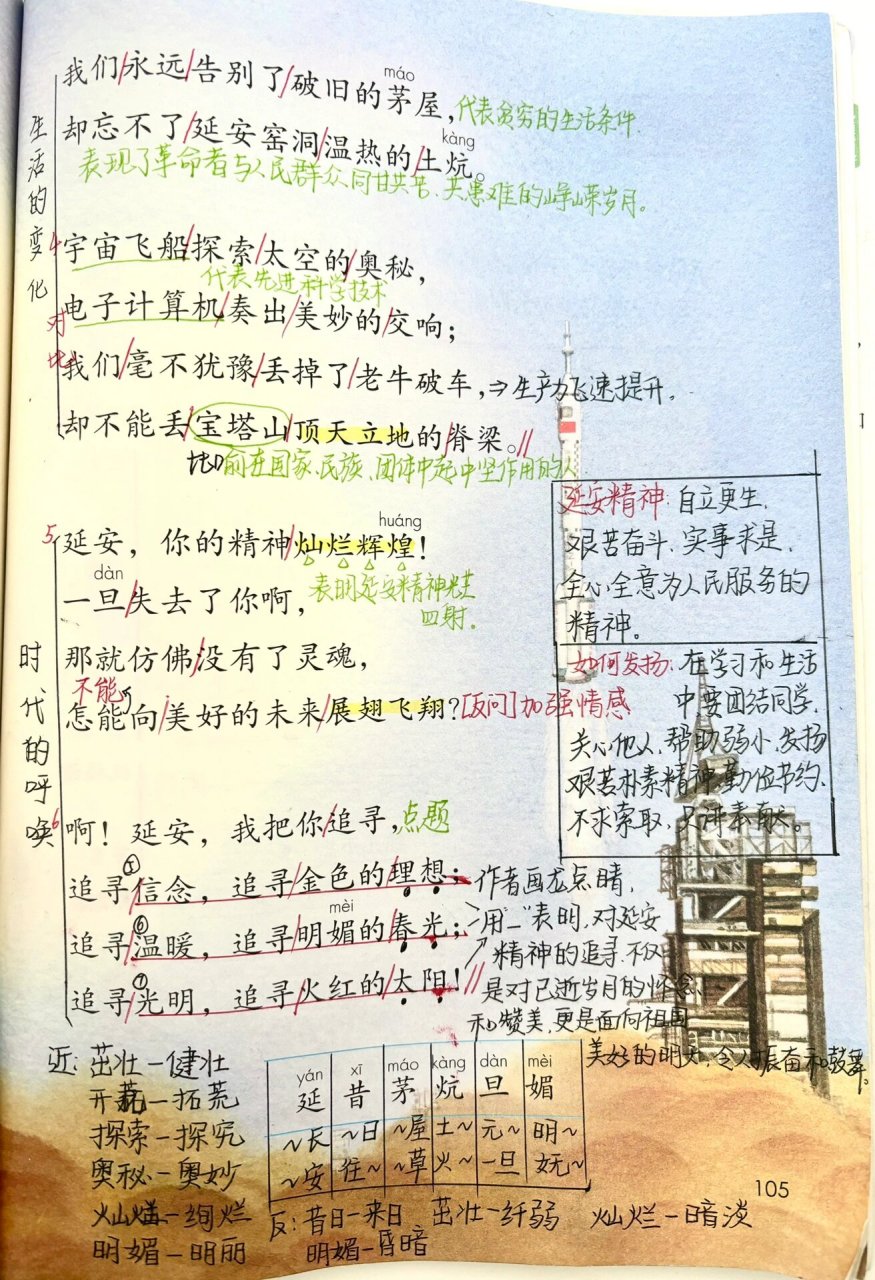 máo
我们/永远/告别了/破旧的茅屋，代表贫穷的生活条件.
kàng
却忘不了/延安窑洞/温热的/土炕。
表现了革命者与人民群众同甘共苦、共患难的峥嵘岁月。
生活的变化
4 宇宙飞船/探索/太空的/奥秘，
代表先进科学技术
电子计算机/奏出/美妙的/交响；
对比
我们/毫不犹豫/丢掉了/老牛破车，⇒生产力飞速提升。
却不能丢/宝塔山/顶天立地的/脊梁。//
前在国家、民族、团体中起中坚作用的人
huáng
5 延安，你的精神/灿烂辉煌！
dàn
一旦/失去了你啊，表明延安精神光芒
四射.
那就仿佛/没有了灵魂，
不能
怎能向/美好的未来/展翅飞翔？[反问]加强情感
时代的呼唤
延安精神：自立更生、
艰苦奋斗、实事求是、
全心全意为人民服务的
精神。
如何发扬：在学习和生活
中要团结同学，
关心他人，帮助弱小，发扬
艰苦朴素精神，勤俭节约、
不求索取，只讲奉献。
6 啊！延安，我把你/追寻，点题
追寻⑤信念，追寻/金色的/理想；
mèi
追寻⑥温暖，追寻/明媚的/春光；
追寻⑦光明，追寻/火红的/太阳！//
作者画龙点睛，
用“—”表明，对延安
精神的追寻，不仅
是对已逝岁月的怀念
和赞美，更是面向祖国
美好的明天，令人振奋和鼓舞。
近：茁壮—健壮
开荒—拓荒
探索—探究
奥秘—奥妙
灿烂—绚烂
明媚—明丽
yán xī máo kàng dàn mèi
延 昔 茅 炕 旦 媚
~长 ~日 ~屋 土~ 元~ 明~
~安 往~ ~草 火~ 一旦 妩~
反：昔日—来日 茁壮—纤弱 灿烂—暗淡
明媚—昏暗
105